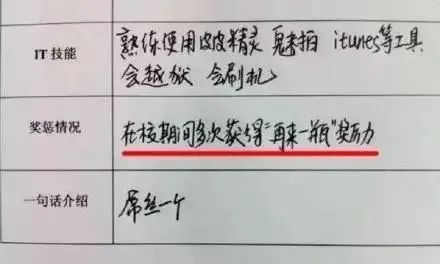 IT技能
熟练使用皮皮精灵 魅拍 itunes等工具
会越狱 会刷机
奖惩情况
在校期间多次获得“再来一瓶”奖励
一句话介绍
屌丝一个